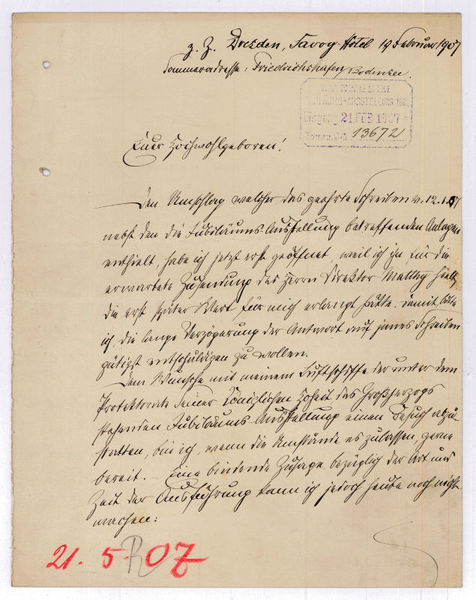 z. Z. Dresden, Savoy-Hôtel 19 Februar 1907
Sommeradresse: Friedrichshafen Bodensee.
Eingang 21 FEB 1907
13672
Euer Hochwohlgeboren!
Den Umschlag welcher das geehrte Schreiben v. 12.1.07
nebst den die Jubiläums Ausstellung betreffenden Anlagen
enthielt habe ich jetzt erst geöffnet weil ich ja für die
erwartete Zusendung des Herrn Direktor hielt,
die erst später Wert für mich erlangt hätte. Damit bitte
ich die lange Verzögerung der Antwort auf jenes Schreiben
gütigst entschuldigen zu wollen.
Dem Wunsche mit meinem Luftschiffe der unter dem
Protektorate Seiner Königlichen Hoheit des Großherzogs
stehenden Jubiläums Ausstellung einen Besuch abzu-
statten, bin ich, wenn die Umstände es zulassen, gerne
bereit. Eine bindende Zusage bezüglich der Art und
Zeit der Ausführung kann ich jedoch heute noch nicht
machen:
21. 5. 07